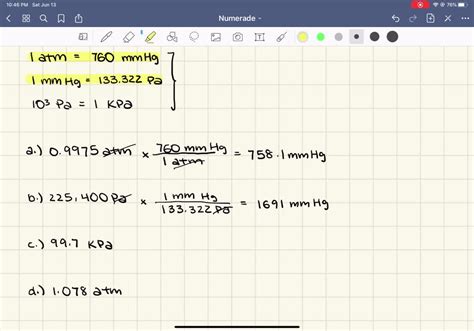 10:46 PM Sat Jun 13
76%
Numerade
1 atm = 760 mmHg
1 mmHg = 133.322 Pa
10³ Pa = 1 KPa
a.) 0.9975 atm × 760 mm Hg / 1 atm = 758.1 mmHg
b.) 225,400 Pa × 1 mm Hg / 133.322 Pa = 1691 mmHg
c.) 99.7 KPa
d.) 1.078 atm